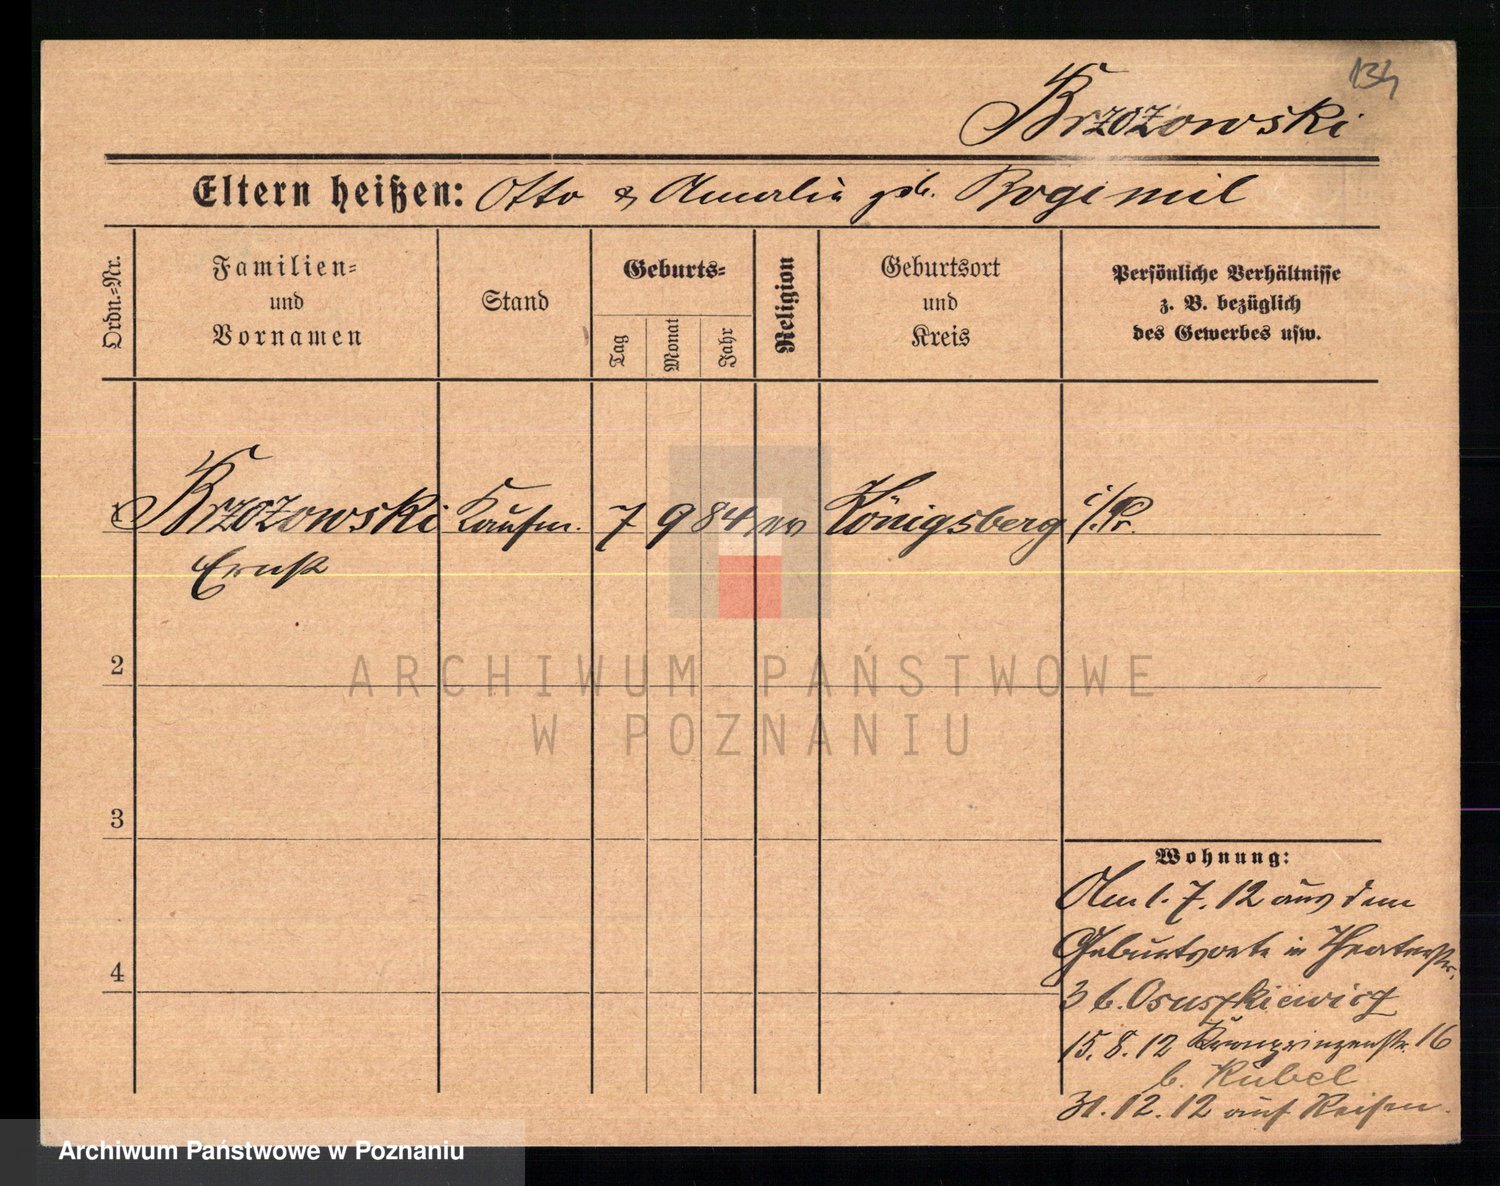 134
Brzozowski
Eltern heißen: Otto & Amalie geb. Bogimil
Ordn.=Nr.
Familien=
und
Vornamen
Stand
Geburts=
Tag
Monat
Jahr
Religion
Geburtsort
und
Kreis
Persönliche Verhältnisse
z. B. bezüglich
des Gewerbes usw.
1 Brzozowski Kaufm. 7 9 84 ev Königsberg i/Pr.
Ernst
2
ARCHIWUM PAŃSTWOWE
W POZNANIU
3
4
Wohnung:
Am 1. 7. 12 aus dem
Geburtsorte in Theaterstr.
3 b. Osuszkiewicz
15. 8. 12 Kronprinzenstr. 16
b. Kubel
31. 12. 12 auf Reisen.
Archiwum Państwowe w Poznaniu